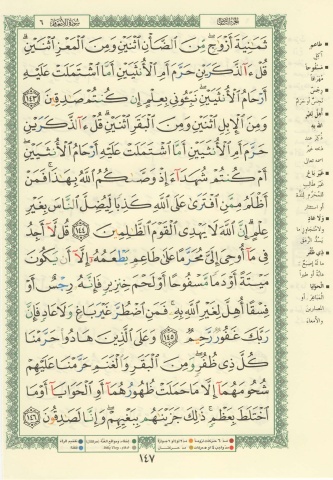 سورة الأنعام ٦
ثَمَٰنِيَةَ أَزْوَٰجٍ مِّنَ ٱلضَّأْنِ ٱثْنَيْنِ وَمِنَ ٱلْمَعْزِ ٱثْنَيْنِ
قُلْ ءَآلذَّكَرَيْنِ حَرَّمَ أَمِ ٱلْأُنثَيَيْنِ أَمَّا ٱشْتَمَلَتْ عَلَيْهِ
أَرْحَامُ ٱلْأُنثَيَيْنِ نَبِّـُٔونِى بِعِلْمٍ إِن كُنتُمْ صَٰدِقِينَ ١٤٣
وَمِنَ ٱلْإِبِلِ ٱثْنَيْنِ وَمِنَ ٱلْبَقَرِ ٱثْنَيْنِ قُلْ ءَآلذَّكَرَيْنِ
حَرَّمَ أَمِ ٱلْأُنثَيَيْنِ أَمَّا ٱشْتَمَلَتْ عَلَيْهِ أَرْحَامُ ٱلْأُنثَيَيْنِ
أَمْ كُنتُمْ شُهَدَآءَ إِذْ وَصَّىٰكُمُ ٱللَّهُ بِهَٰذَا فَمَنْ
أَظْلَمُ مِمَّنِ ٱفْتَرَىٰ عَلَى ٱللَّهِ كَذِبًا لِّيُضِلَّ ٱلنَّاسَ بِغَيْرِ
عِلْمٍ إِنَّ ٱللَّهَ لَا يَهْدِى ٱلْقَوْمَ ٱلظَّٰلِمِينَ ١٤٤ قُل لَّآ أَجِدُ
فِى مَآ أُوحِىَ إِلَىَّ مُحَرَّمًا عَلَىٰ طَاعِمٍ يَطْعَمُهُۥٓ إِلَّآ أَن يَكُونَ
مَيْتَةً أَوْ دَمًا مَّسْفُوحًا أَوْ لَحْمَ خِنزِيرٍ فَإِنَّهُۥ رِجْسٌ أَوْ
فِسْقًا أُهِلَّ لِغَيْرِ ٱللَّهِ بِهِۦ فَمَنِ ٱضْطُرَّ غَيْرَ بَاغٍ وَلَا عَادٍ فَإِنَّ
رَبَّكَ غَفُورٌ رَّحِيمٌ ١٤٥ وَعَلَى ٱلَّذِينَ هَادُوا۟ حَرَّمْنَا
كُلَّ ذِى ظُفُرٍ وَمِنَ ٱلْبَقَرِ وَٱلْغَنَمِ حَرَّمْنَا عَلَيْهِمْ
شُحُومَهُمَآ إِلَّا مَا حَمَلَتْ ظُهُورُهُمَآ أَوِ ٱلْحَوَايَآ أَوْ مَا
ٱخْتَلَطَ بِعَظْمٍ ذَٰلِكَ جَزَيْنَٰهُم بِبَغْيِهِمْ وَإِنَّا لَصَٰدِقُونَ ١٤٦
طاعم
آكل
مسفوحا
مهراقا
رجس
أهل لغير
الله به
غير باغ
ولا عاد
ذي ظفر
الحوايا
١٤٧